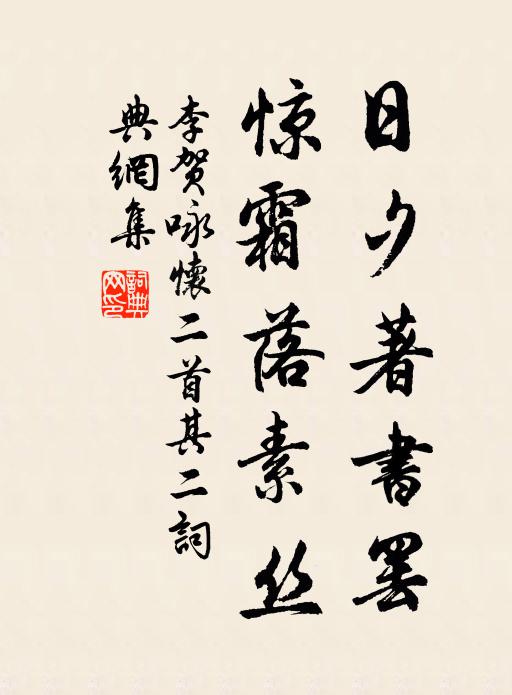 日夕著書罢
惊霜落素丝
李贺咏懷二首其二詞
典網集
詞典网印